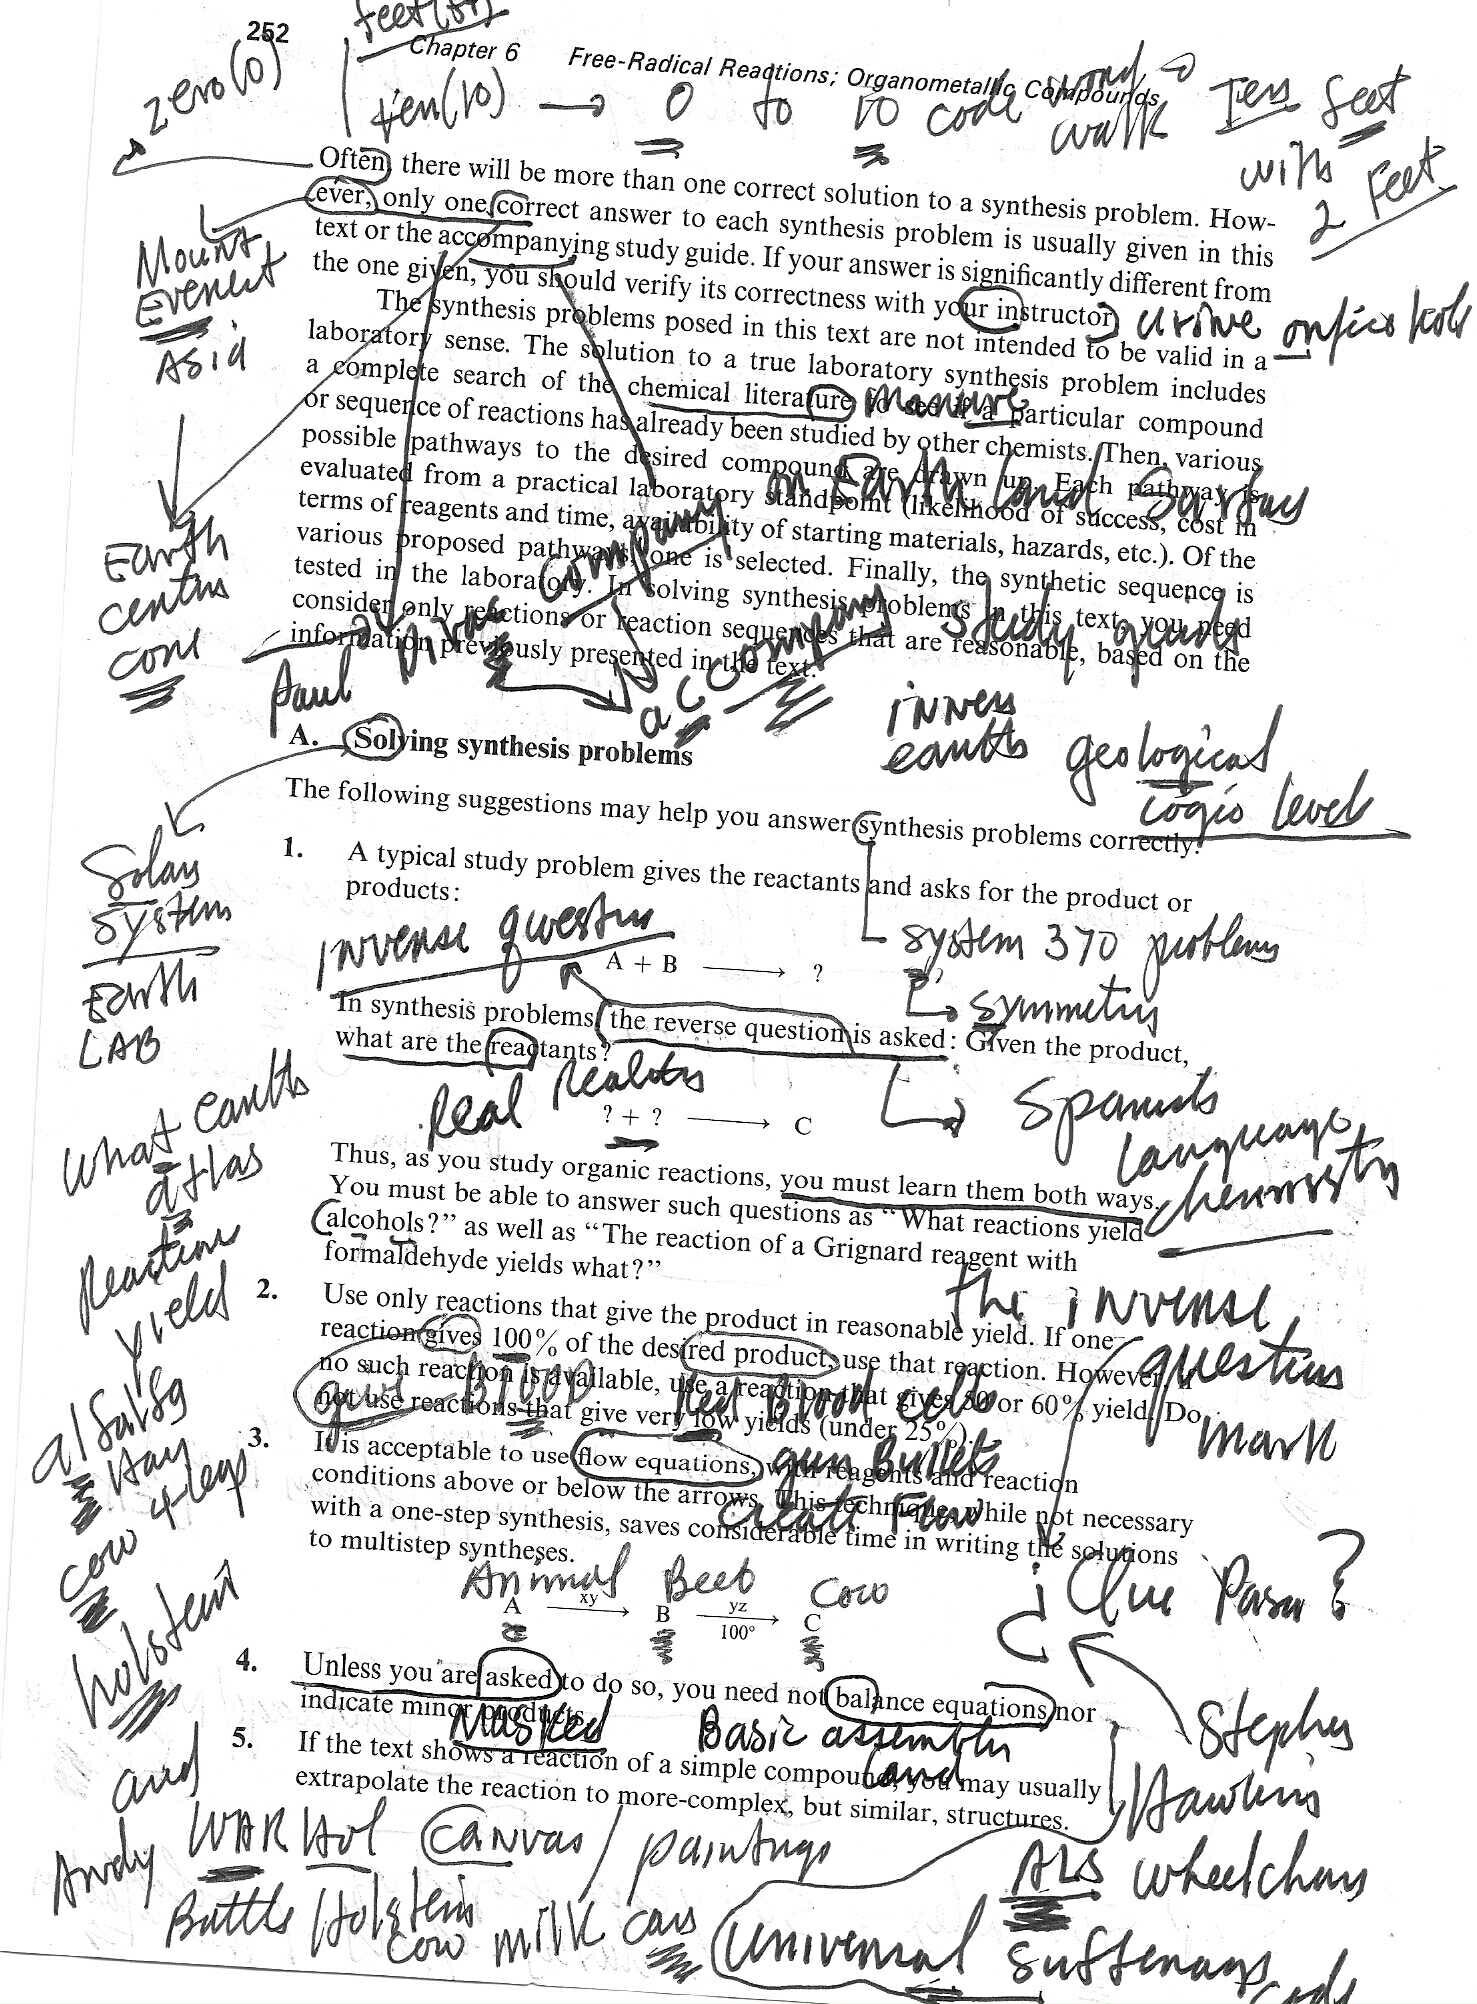 252
feet(of)
Chapter 6 Free-Radical Reactions; Organometallic Compounds
zero(0)
ten(10) → 0 to 10 code word →
walk Ten feet
with
2 Feet
Often, there will be more than one correct solution to a synthesis problem. How-
ever, only one correct answer to each synthesis problem is usually given in this
text or the accompanying study guide. If your answer is significantly different from
the one given, you should verify its correctness with your instructor.
Mount
Everest
Asia
urine
The synthesis problems posed in this text are not intended to be valid in a
laboratory sense. The solution to a true laboratory synthesis problem includes
a complete search of the chemical literature to see if a particular compound
manure
or sequence of reactions has already been studied by other chemists. Then, various
possible pathways to the desired compound are drawn up. Each pathway is
on Earth land
evaluated from a practical laboratory standpoint (likelihood of success, cost in
terms of reagents and time, availability of starting materials, hazards, etc.). Of the
various proposed pathways, one is selected. Finally, the synthetic sequence is
company
tested in the laboratory. In solving synthesis problems in this text, you need
consider only reactions or reaction sequences that are reasonable, based on the
information previously presented in the text.
Earth
centus
core
Paul
accompany
study
inner
earth
geological
logic level
A. Solving synthesis problems
The following suggestions may help you answer synthesis problems correctly.
Solar
System
Earth
LAB
1. A typical study problem gives the reactants and asks for the product or
products:
inverse question
system 370 problems
A + B → ?
symmetry
In synthesis problems, the reverse question is asked: Given the product,
what are the reactants?
Real
? + ? → C
Spanish
Language
chemistry
What earth
atlas
Reaction
yield
Thus, as you study organic reactions, you must learn them both ways.
You must be able to answer such questions as “What reactions yield
alcohols?” as well as “The reaction of a Grignard reagent with
formaldehyde yields what?”
the inverse
question
mark
2. Use only reactions that give the product in reasonable yield. If one
reaction gives 100% of the desired product, use that reaction. However, if
no such reaction is available, use a reaction that gives 50 or 60% yield. Do
not use reactions that give very low yields (under 25%).
BLOOD
Red Blood cells
gun Bullets
create Flow
alfalfa
Hay
cow 4-legs
holstein
and
3. It is acceptable to use flow equations, with reagents and reaction
conditions above or below the arrows. This technique, while not necessary
with a one-step synthesis, saves considerable time in writing the solutions
to multistep syntheses.
Animal Beef Cow
A xy → B yz → 100° C
¿ Que Pasa ?
4. Unless you are asked to do so, you need not balance equations nor
indicate minor products.
Masked Basic assembler
land
5. If the text shows a reaction of a simple compound, you may usually
extrapolate the reaction to more-complex, but similar, structures.
Stephen
Hawkins
ALS wheelchair
Andy WARHol Canvas / paintings
Battle Holstein
cow milk
universal